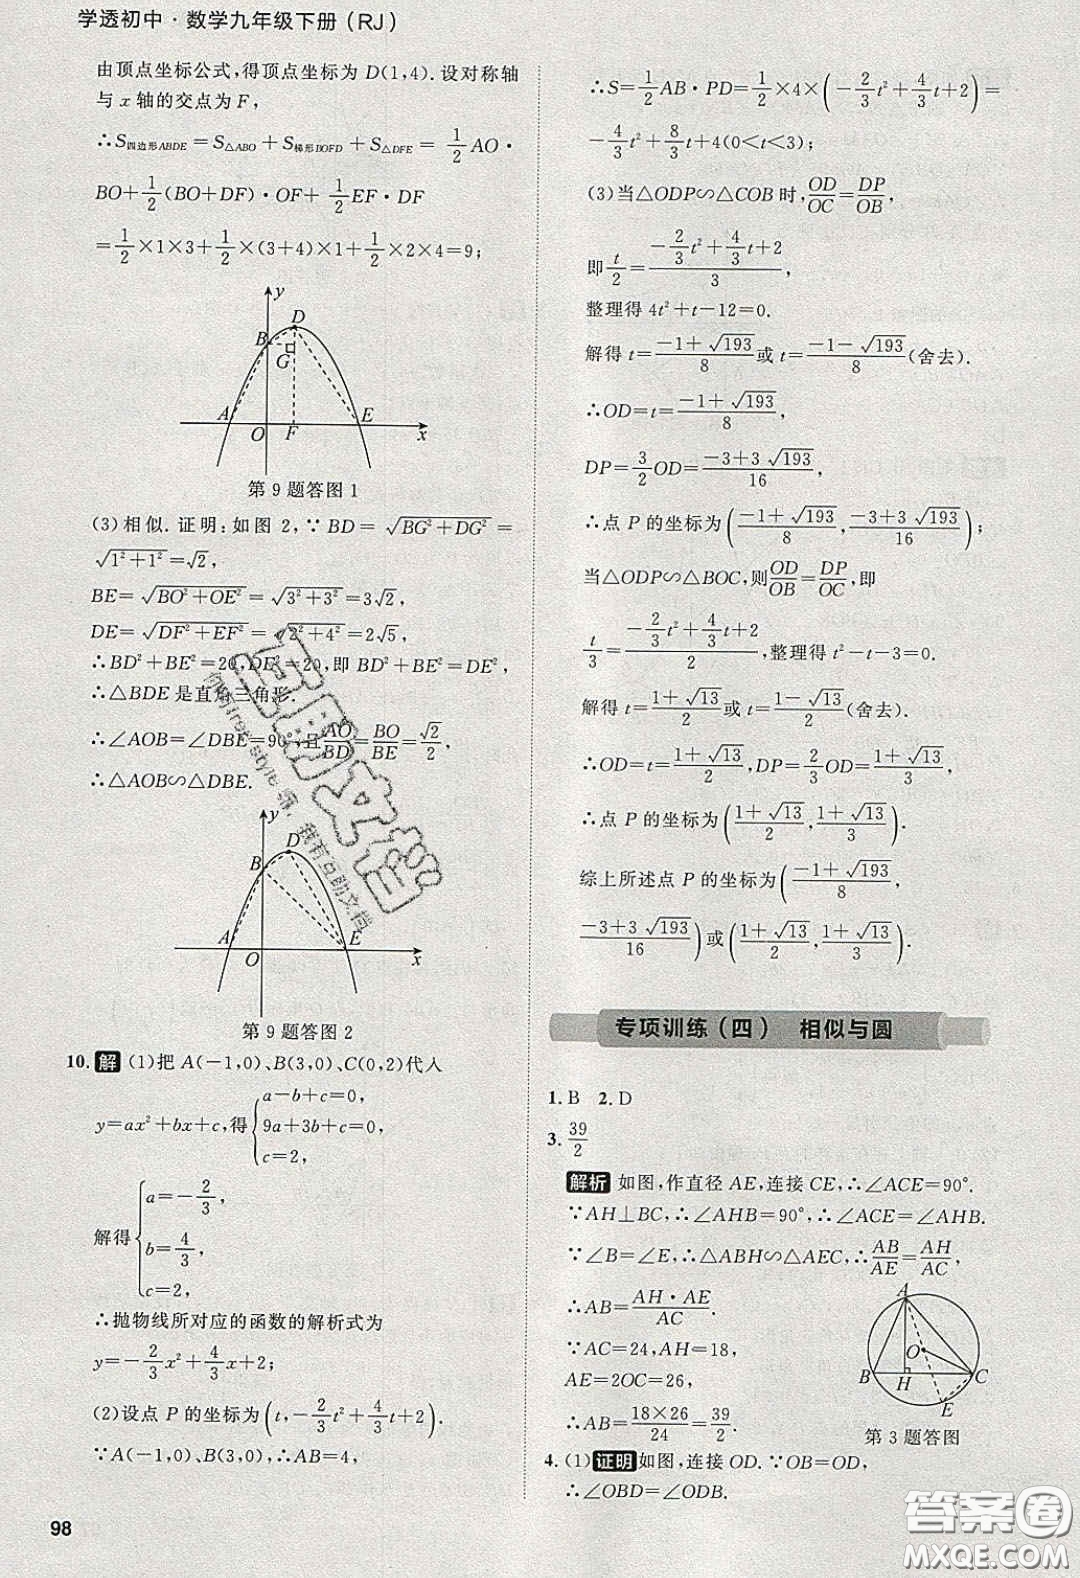 学透初中·数学九年级下册(RJ)
由顶点坐标公式,得顶点坐标为 D(1,4).设对称轴
与 x 轴的交点为 F,
∴S四边形ABDE=S△ABO+S梯形BOFD+S△DFE=1/2 AO·
BO+1/2(BO+DF)·OF+1/2 EF·DF
=1/2×1×3+1/2×(3+4)×1+1/2×2×4=9;
y
D
B
G
A
E
O F x
第 9 题答图 1
(3)相似.证明:如图 2,∵BD=√(BG²+DG²)=
√(1²+1²)=√2,
BE=√(BO²+OE²)=√(3²+3²)=3√2,
DE=√(DF²+EF²)=√(2²+4²)=2√5,
∴BD²+BE²=20,DE²=20,即 BD²+BE²=DE²,
∴△BDE 是直角三角形.
∴∠AOB=∠DBE=90°,且AO/BD=BO/BE=√2/2,
∴△AOB∽△DBE.
y
D
B
A
E
O x
第 9 题答图 2
10. 解 (1)把 A(-1,0)、B(3,0)、C(0,2)代入
y=ax²+bx+c,得{a-b+c=0,
9a+3b+c=0,
c=2,
解得{a=-2/3,
b=4/3,
c=2,
∴抛物线所对应的函数的解析式为
y=-2/3x²+4/3x+2;
(2)设点 P 的坐标为(t,-2/3t²+4/3t+2).
∵A(-1,0)、B(3,0),∴AB=4,
98
∴S=1/2 AB·PD=1/2×4×(-2/3t²+4/3t+2)=
-4/3t²+8/3t+4(0<t<3);
(3)当△ODP∽△COB 时,OD/OC=DP/OB,
即t/2=(-2/3t²+4/3t+2)/3,
整理得 4t²+t-12=0.
解得 t=(-1+√193)/8或 t=(-1-√193)/8(舍去).
∴OD=t=(-1+√193)/8,
DP=3/2OD=(-3+3√193)/16,
∴点 P 的坐标为((-1+√193)/8,(-3+3√193)/16);
当△ODP∽△BOC,则OD/OB=DP/OC,即
t/3=(-2/3t²+4/3t+2)/2,整理得 t²-t-3=0.
解得 t=(1+√13)/2或 t=(1-√13)/2(舍去).
∴OD=t=(1+√13)/2,DP=2/3OD=(1+√13)/3,
∴点 P 的坐标为((1+√13)/2,(1+√13)/3).
综上所述点 P 的坐标为((-1+√193)/8,
(-3+3√193)/16)或((1+√13)/2,(1+√13)/3).
专项训练(四) 相似与圆
1. B 2. D
3. 39/2
解析 如图,作直径 AE,连接 CE,∴∠ACE=90°.
∵AH⊥BC,∴∠AHB=90°,∴∠ACE=∠AHB.
∵∠B=∠E,∴△ABH∽△AEC,∴AB/AE=AH/AC,
∴AB=AH·AE/AC.
∵AC=24,AH=18,
AE=2OC=26,
∴AB=18×26/24=39/2.
A
O
B H C
E
第 3 题答图
4. (1)证明 如图,连接 OD.∵OB=OD,
∴∠OBD=∠ODB.
答案圈
MXQE.COM